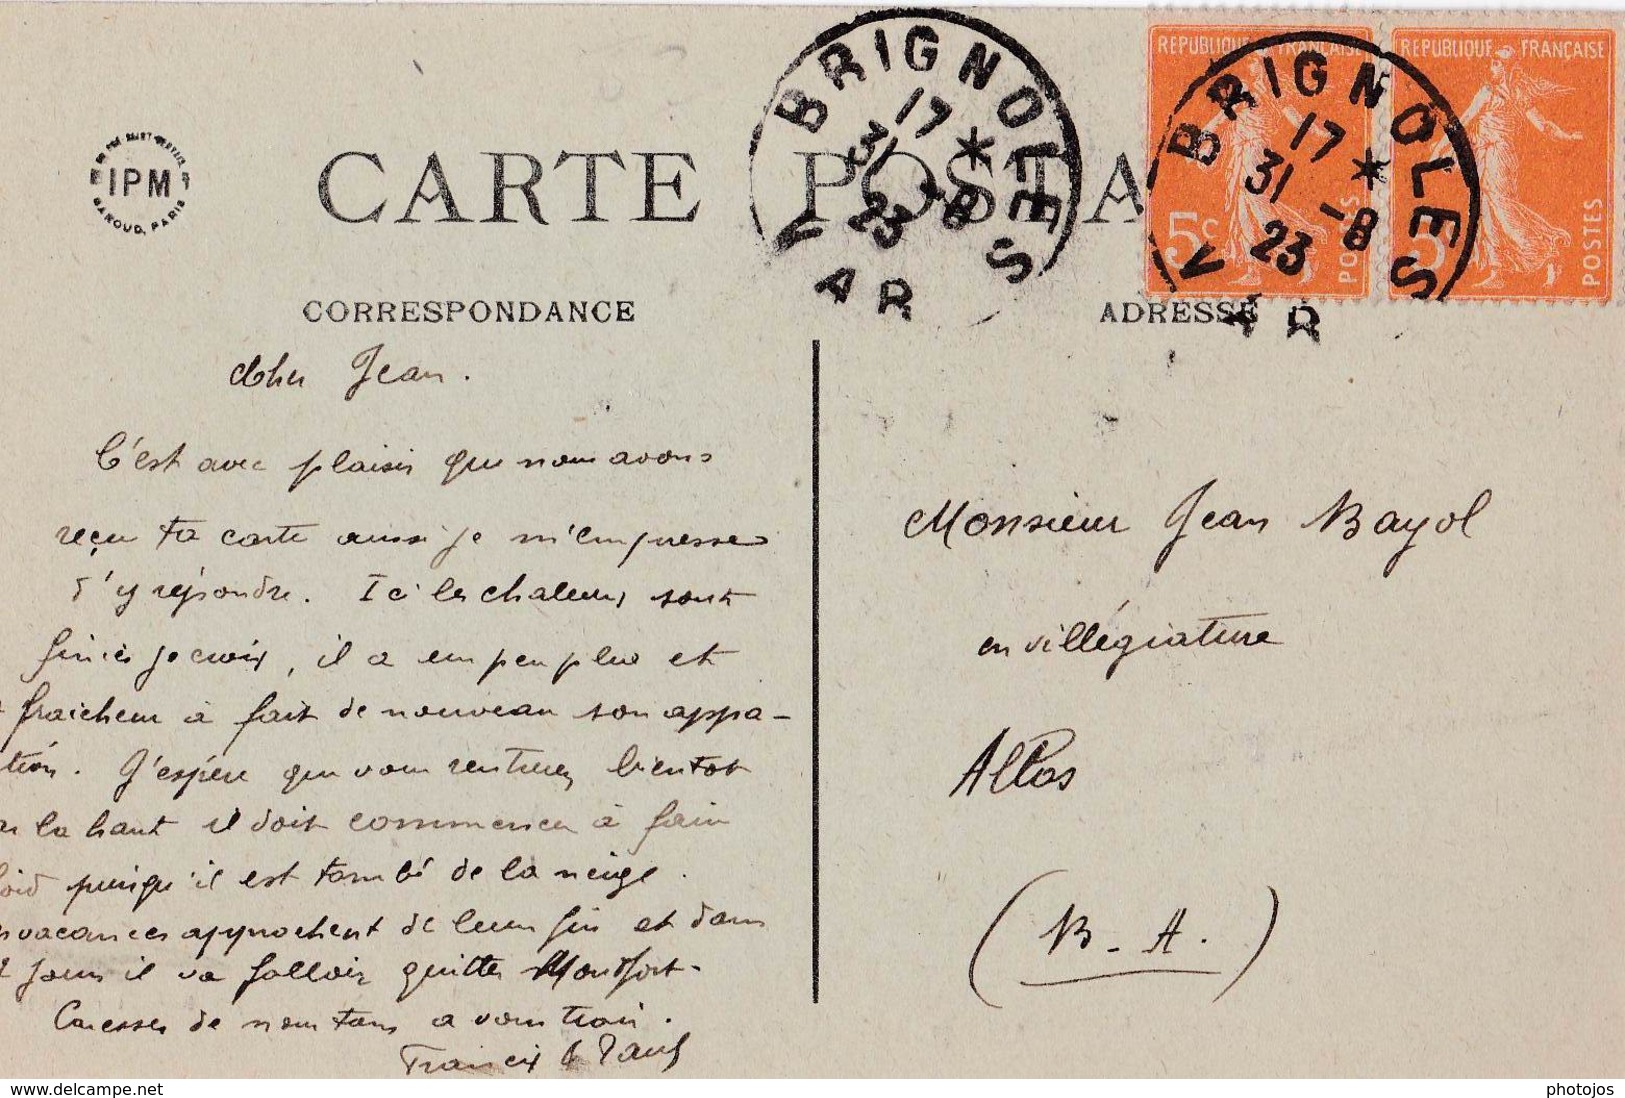 BRIGNOLES
17 *
31 -8
23
VAR
REPUBLIQUE FRANÇAISE
5c
POSTES
REPUBLIQUE FRANÇAISE
POSTES
BRIGNOLES
17 *
31 -8
23
VAR
IPM
BANOUD, PARIS
CARTE POSTA
CORRESPONDANCE
ADRESSE
Cher Jean.
C'est avec plaisir que nous avons
reçu ta carte aussi je m'empresse
d'y répondre. Ici les chaleurs sont
finies je crois, il a un peu plu et
fraicheur à fait de nouveau son appa-
tion. J'espère que vous rentrerez bientot
la haut il doit commencer à fair
puisqu'il est tombé de la neige.
vacances approchent de leur fin et dans
jours il va falloir quitter Montfort.
Caresses de nous tous a vous trois.
Francis & Paul
Monsieur Jean Bayol
en villégiature
Allos
(B-A.)
www.delcampe.net
photojos